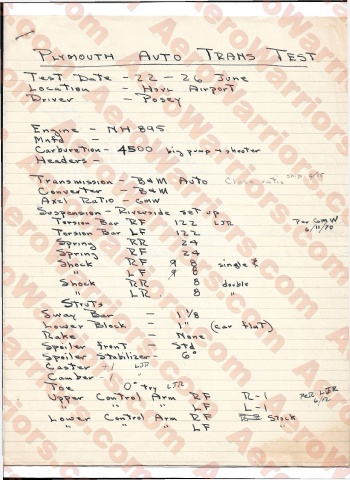 PLYMOUTH AUTO TRANS TEST
Test Date - 22 - 26 June
Location - Hsvl Airport
Driver - Posey
Engine - NH 895
Mnfd -
Carburetion - 4500 big pump & shooter
Headers -
Transmission - B&M Auto Close ratio
Converter - B&M
Axel Ratio - GMW
Suspension - Riverside set up
Torsion Bar RF 122 LJR Per GMW
Torsion Bar LF 122 6/11/70
Spring RR 24
Spring RF 24
Shock RF 9 8 single
" LF 9 8
Shock RR 8 double
" LR 8 "
Struts
Sway Bar - 1 1/8
Lower Block - 1" (car flat)
Rake - None
Spoiler front - Std
Spoiler Stabilizer - 6°
Caster +1 LJR
Camber -1 "
Toe 0° try LJR
Upper Control Arm RF R-1 Per LJR
" " " LF L-1 6/12
Lower Control Arm RF Stock
" " " LF "
AeroWarriors.com